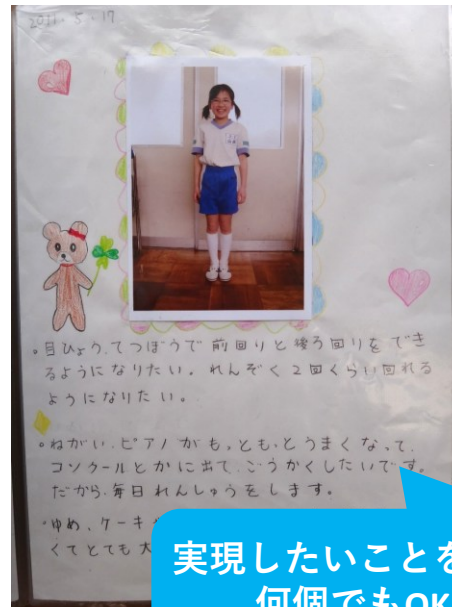 2011.5.17
・目ひょう、てつぼうで前回りと後ろ回りをでき
るようになりたい。れんぞく2回くらい回れる
ようになりたい。
・ねがい、ピアノがもっともっとうまくなって、
コンクールとかに出て、ごうかくしたいです。
だから、毎日れんしゅうをします。
・ゆめ、ケーキ
くてとても大
実現したいことを
何個でもOK